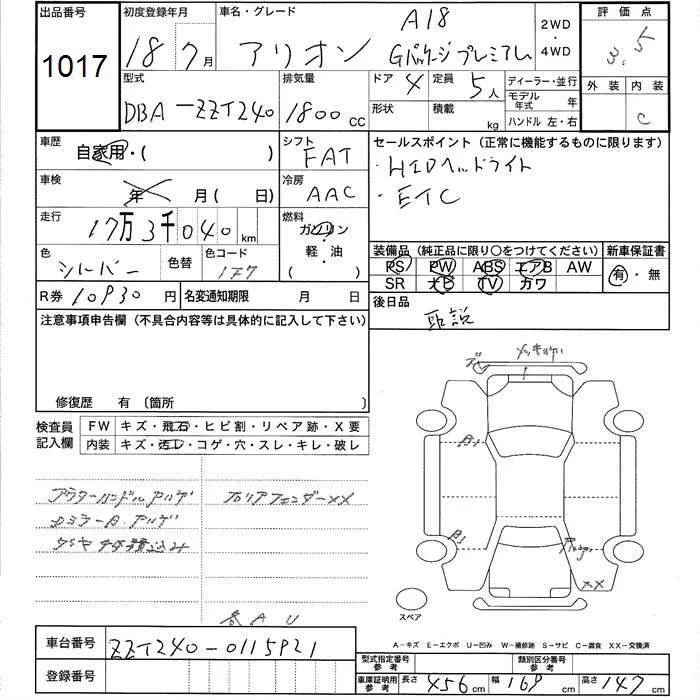 出品番号 初度登録年月 車名・グレード A18 2WD ・ 4WD 評価点
1017 18 7月 アリオン Gパッケージプレミアム 3.5
型式 排気量 ドア 4 定員 5人 ディーラー・並行 外装 内装
DBA-ZZT240 1800cc 形状 積載 kg モデル年式 年 C
ハンドル 左・右
車歴 自家用・( ) シフト FAT セールスポイント (正常に機能するものに限ります)
・HIDヘッドライト
車検 年 月( 日) 冷房 AAC ・ETC
走行 17万3千040km 燃料 ガソリン
軽・油
( )
色 シルバー 色替 色コード 1F7 装備品 (純正品に限り○をつけてください) 新車保証書
PS PW ABS エアB AW 有・無
SR ナビ TV カワ
R券 10930円 名変通知期限 月 日 後日品
取説
注意事項申告欄 (不具合内容等は具体的に記入して下さい)
修復歴 有 〔箇所 〕
検査員記入欄 FW キズ・飛石・ヒビ割・リペア跡・X要
内装 キズ・汚レ・コゲ・穴・スレ・キレ・破レ
アウターハンドルアルデ カロリアフェンダーXX
ドミラーA・アルデ
タイヤ4本積込み
A1
A1
XX
スペア
A-キズ E-エクボ U-凹み W-補修跡 S-サビ C-腐食 XX-交換済
車台番号 ZZT240-0115921
登録番号
型式指定番号 参考 類別区分番号 参考
車庫証明用 参考 長さ 456cm 幅 169cm 高さ 147cm